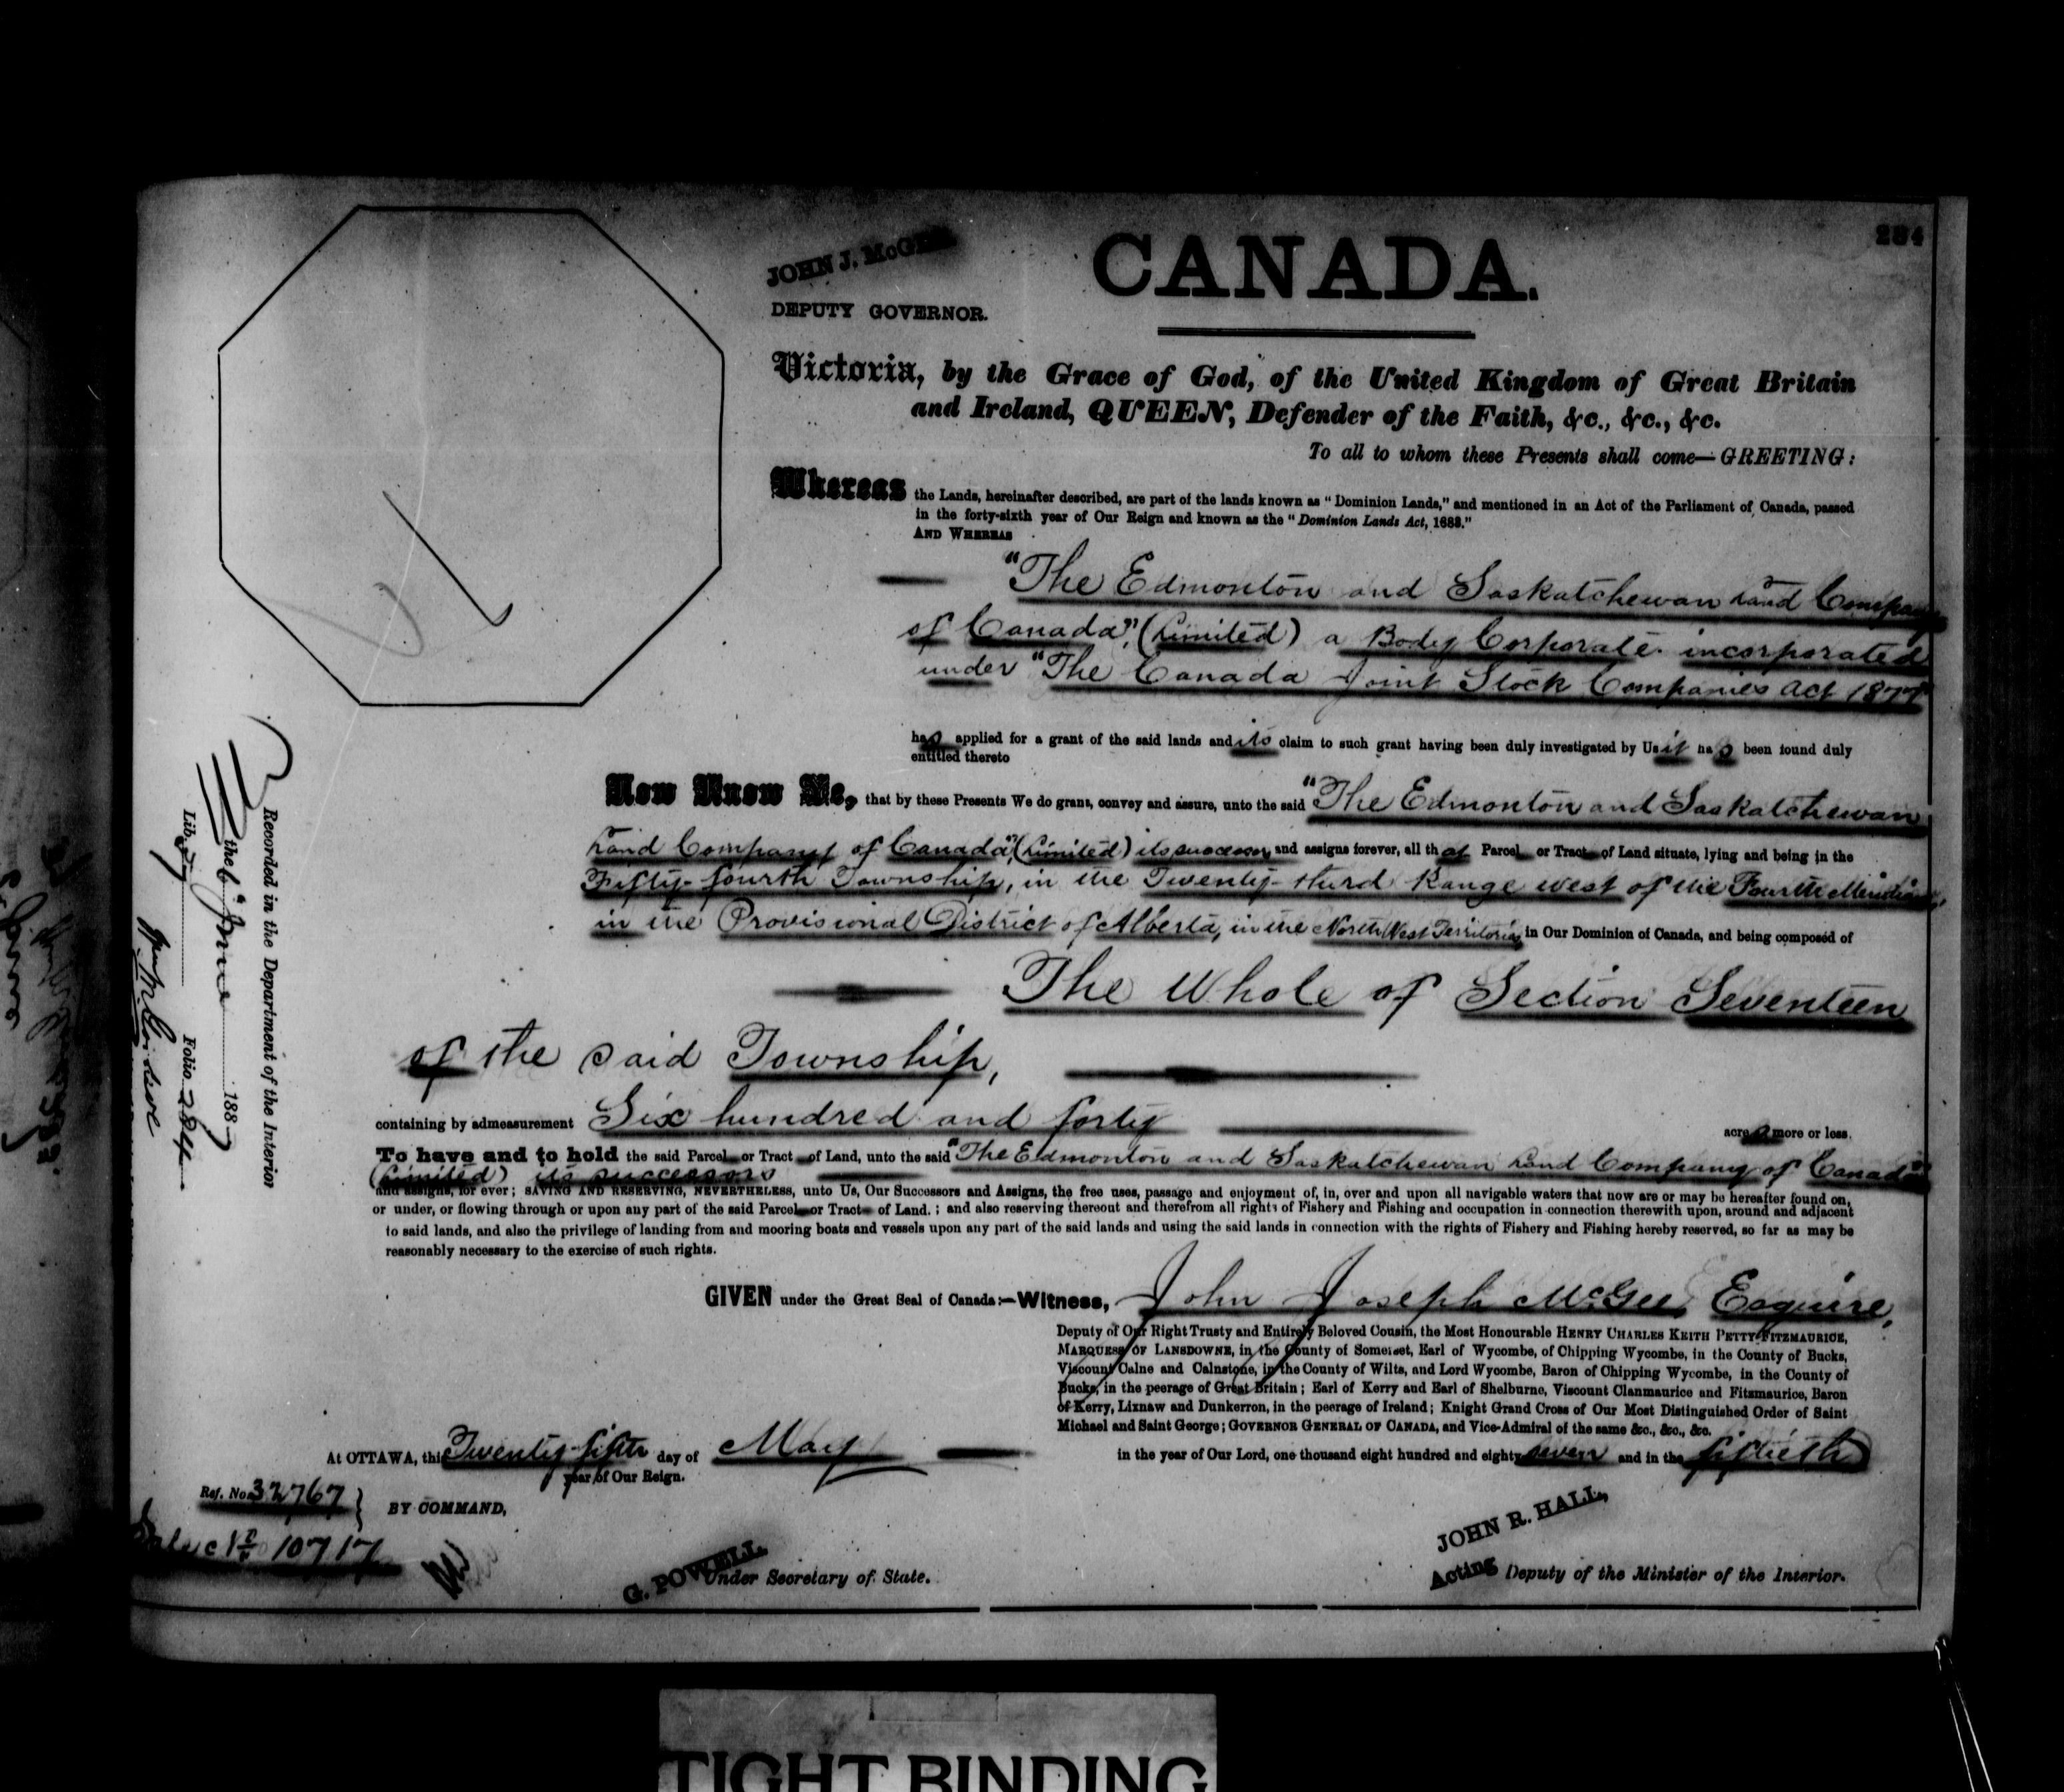 284
JOHN J. McGEE
DEPUTY GOVERNOR.
CANADA.
Victoria, by the Grace of God, of the United Kingdom of Great Britain
and Ireland, QUEEN, Defender of the Faith, &c., &c., &c.
To all to whom these Presents shall come—GREETING:
Whereas the Lands, hereinafter described, are part of the lands known as "Dominion Lands," and mentioned in an Act of the Parliament of Canada, passed
in the forty-sixth year of Our Reign and known as the "Dominion Lands Act, 1883."
AND WHEREAS
"The Edmonton and Saskatchewan Land Company
of Canada", (Limited) a Body Corporate incorporated
under "The Canada Joint Stock Companies Act 1877"
has applied for a grant of the said lands and its claim to such grant having been duly investigated by Us it has been found duly
entitled thereto
Now Know Ye, that by these Presents We do grant, convey and assure, unto the said "The Edmonton and Saskatchewan
Land Company of Canada", (Limited) its successors and assigns forever, all that Parcel or Tract of Land situate, lying and being in the
Fifty-fourth Township, in the Twenty-third Range west of the Fourth Meridian,
in the Provisional District of Alberta, in the North West Territories, in Our Dominion of Canada, and being composed of
The Whole of Section Seventeen
of the said Township,
containing by admeasurement Six hundred and forty acres more or less.
To have and to hold the said Parcel or Tract of Land, unto the said "The Edmonton and Saskatchewan Land Company of Canada"
(Limited) its successors
and assigns, for ever; SAVING AND RESERVING, NEVERTHELESS, unto Us, Our Successors and Assigns, the free uses, passage and enjoyment of, in, over and upon all navigable waters that now are or may be hereafter found on,
or under, or flowing through or upon any part of the said Parcel or Tract of Land.; and also reserving thereout and therefrom all rights of Fishery and Fishing and occupation in connection therewith upon, around and adjacent
to said lands, and also the privilege of landing from and mooring boats and vessels upon any part of the said lands and using the said lands in connection with the rights of Fishery and Fishing hereby reserved, so far as may be
reasonably necessary to the exercise of such rights.
GIVEN under the Great Seal of Canada:—Witness, John Joseph McGee, Esquire,
Deputy of Our Right Trusty and Entirely Beloved Cousin, the Most Honourable HENRY CHARLES KEITH PETTY-FITZMAURICE,
MARQUESS OF LANSDOWNE, in the County of Somerset, Earl of Wycombe, of Chipping Wycombe, in the County of Bucks,
Viscount Calne and Calnstone, in the County of Wilts, and Lord Wycombe, Baron of Chipping Wycombe, in the County of
Bucks, in the peerage of Great Britain; Earl of Kerry and Earl of Shelburne, Viscount Clanmaurice and Fitzmaurice, Baron
of Kerry, Lixnaw and Dunkerron, in the peerage of Ireland; Knight Grand Cross of Our Most Distinguished Order of Saint
Michael and Saint George; GOVERNOR GENERAL OF CANADA, and Vice-Admiral of the same &c., &c., &c.
At OTTAWA, this Twenty-fifth day of May in the year of Our Lord, one thousand eight hundred and eighty seven and in the fiftieth
year of Our Reign.
Ref. No. 32767
BY COMMAND,
10717
G. POWELL
Under Secretary of State.
JOHN R. HALL,
Acting Deputy of the Minister of the Interior.
Recorded in the Department of the Interior
the 6th June 1887
Lib. 7 Folio 284
TIGHT BINDING